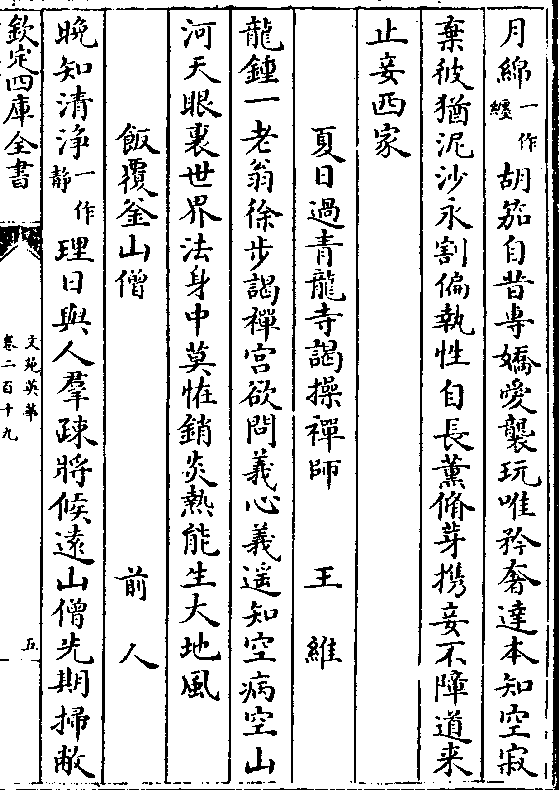 月綿一作纏胡笳自昔專嬌愛襲玩唯矜奢達本知空寂
棄彼猶泥沙永割偏執性自長薰脩芽携妾不障道来
止妾西家
夏日過青龍寺謁操禪師 王維
龍鍾一老翁徐步謁禪宮欲問義心義遥知空病空山
河天眼裏世界法身中莫怪銷炎熱能生大地風
飯覆釜山僧 前人
晚知清浄一作靜理日與人羣疎將候遠山僧先期掃敝
欽定四庫全書
文苑英華
卷二百十九
五